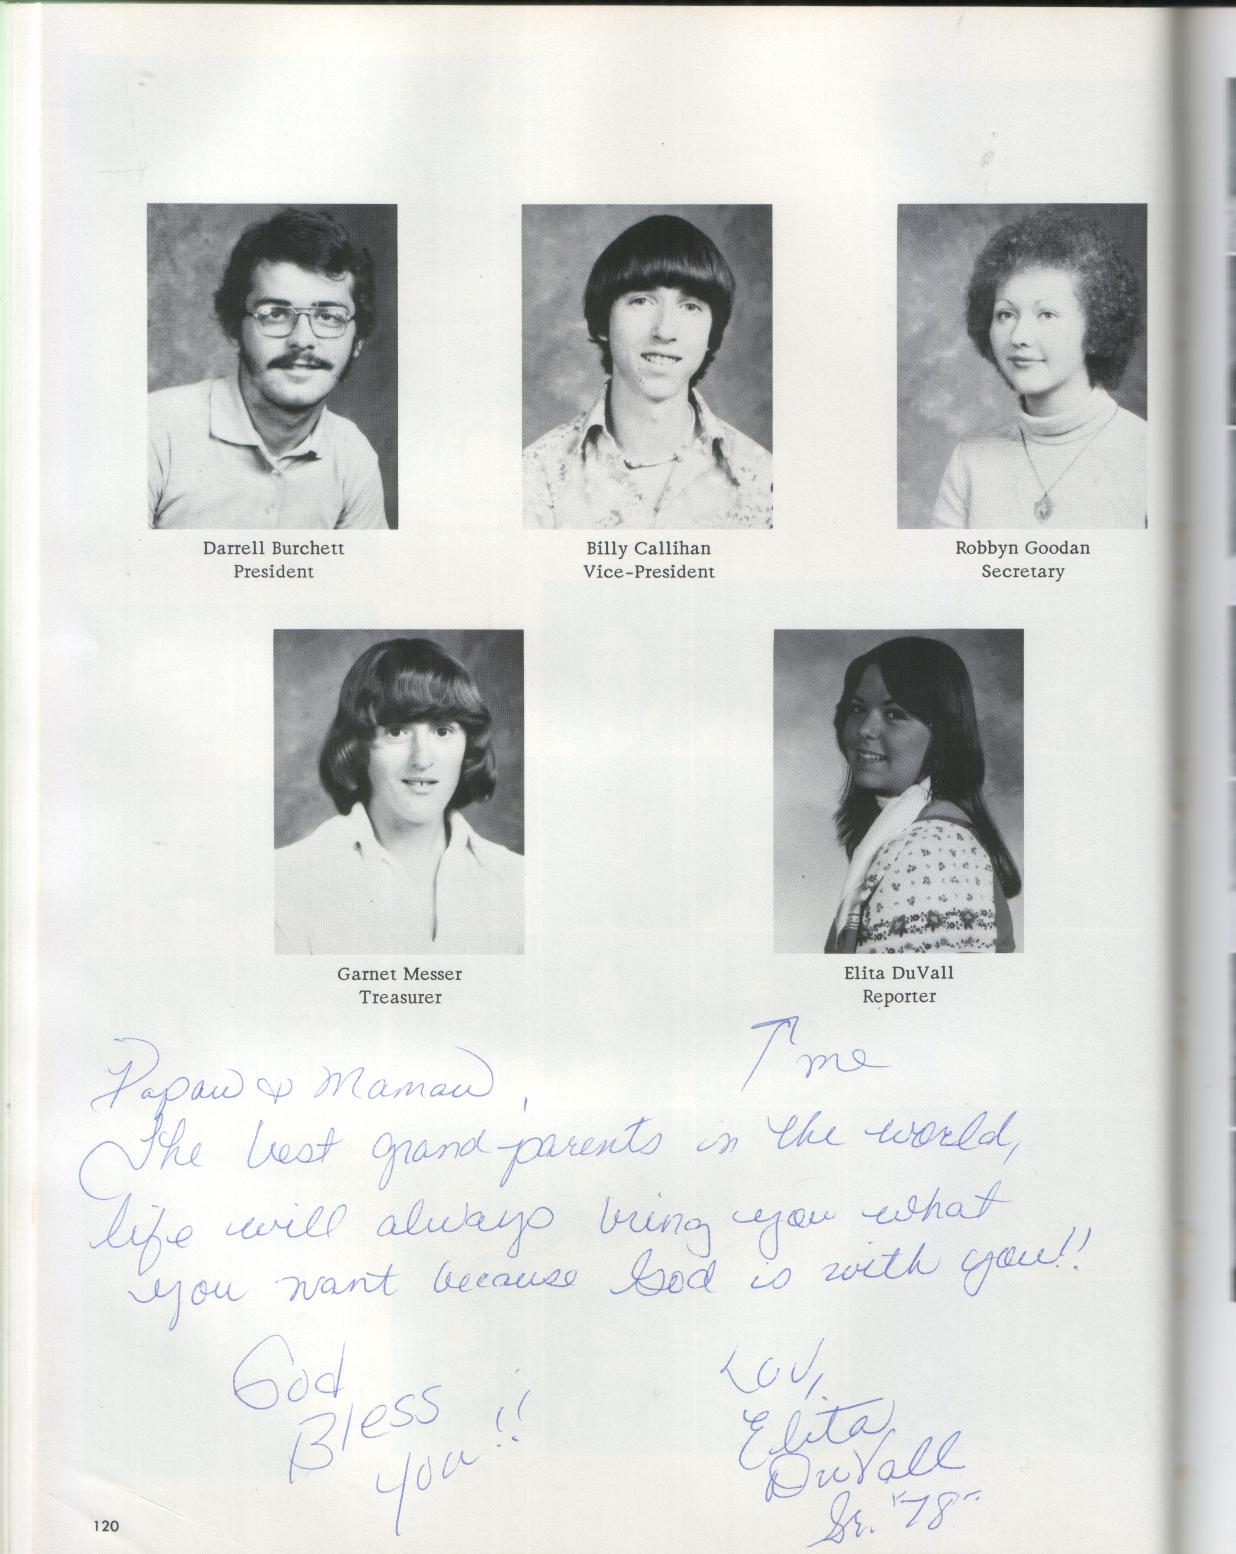 Darrell Burchett
President
Billy Callihan
Vice-President
Robbyn Goodan
Secretary
Garnet Messer
Treasurer
Elita DuVall
Reporter
↑ me
Papaw & Mamaw,
The best grand-parents in the world,
life will always bring you what
you want because God is with you!!
God
Bless
you!!
Luv,
Elita
DuVall
Sr. "78"
120